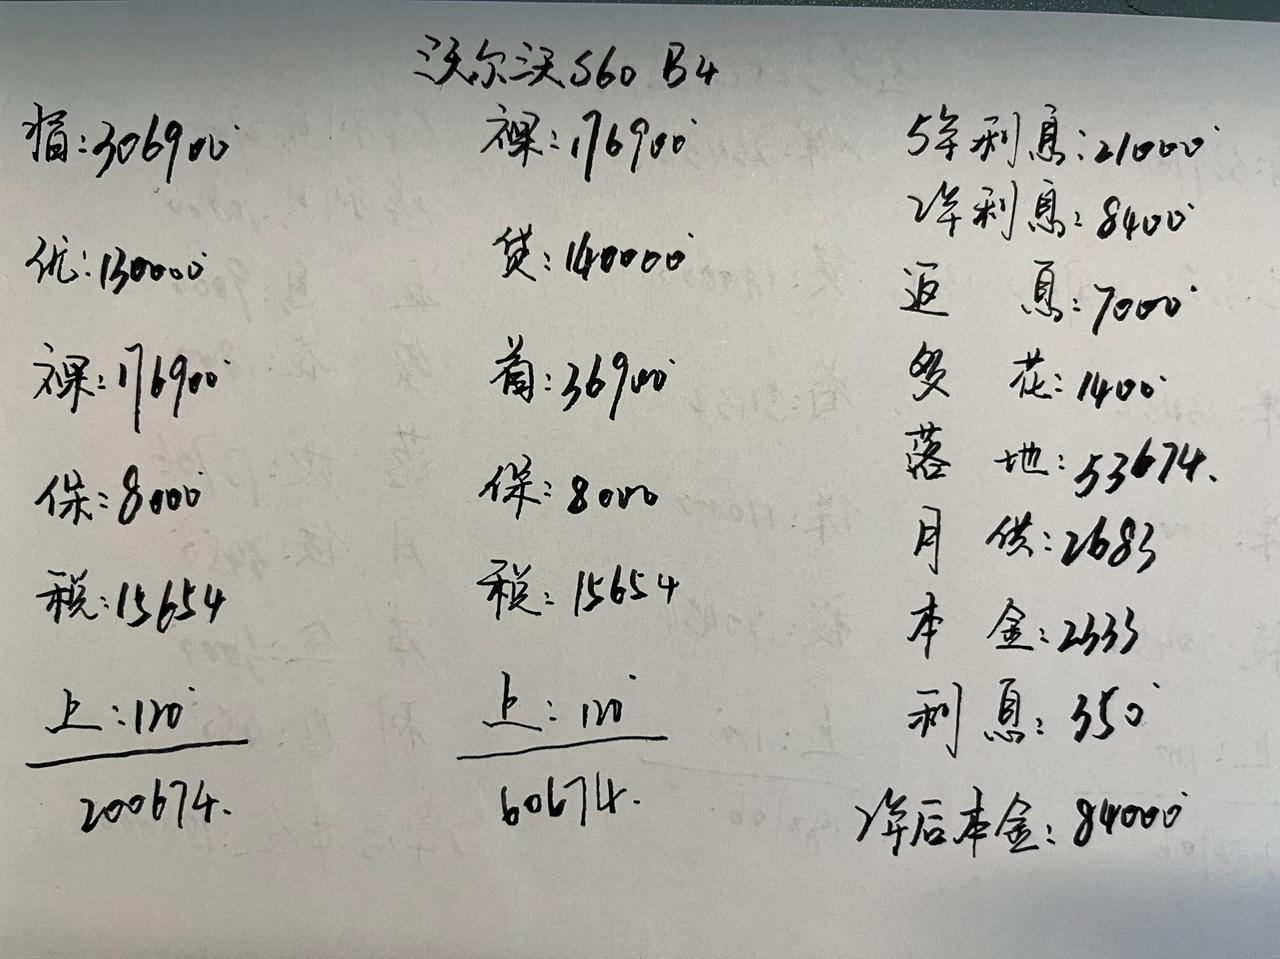 沃尔沃S60 B4
指:306900
优:130000
裸:176900
保:8000
税:15654
上:120
200674.
裸:176900
贷:140000
首:36900
保:8000
税:15654
上:120
60674.
5年利息:21000
2年利息:8400
返息:7000
多花:1400
落地:53674.
月供:2683
本金:2333
利息:350
2年后本金:84000